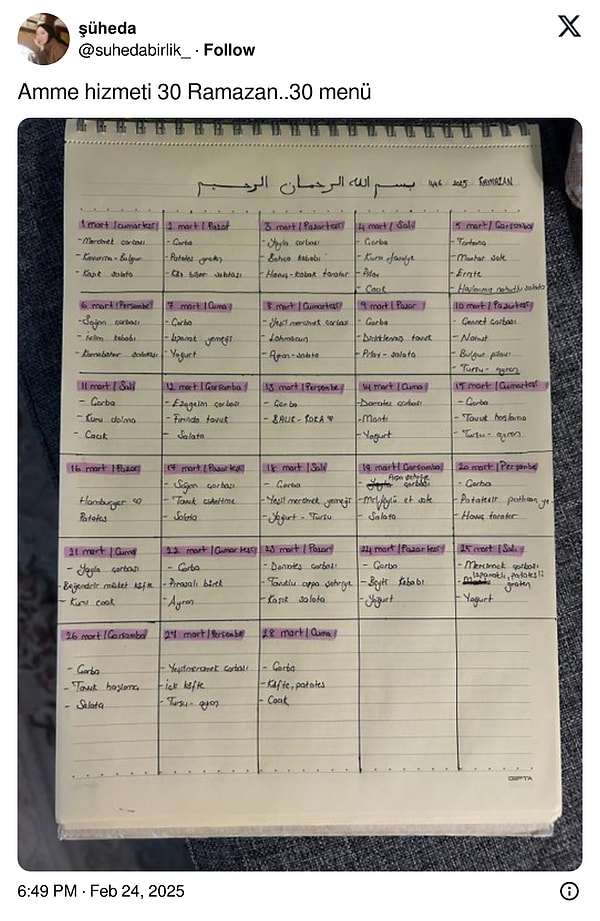 şüheda
@suhedabirlik_ · Follow
Amme hizmeti 30 Ramazan..30 menü
بسم الله الرحمان الرحيم 1446 2025 RAMAZAN
1 mart | Cumartesi
- Mercimek çorbası
- Kavurma - Bulgur
- Kaşık salata
2 mart | Pazar
- Çorba
- Patates graten
- Köz biber salatası
3 mart | Pazartesi
- Yayla çorbası
- Bahçe kebabı
- Havuç-Kabak tarator
4 mart | Salı
- Çorba
- Kuru fasulye
- Pilav
- Cacık
5 mart | Çarşamba
- Tarhana
- Mantar sote
- Erişte
- Haşlanmış nohutlu salata
6 mart | Perşembe
- Soğan çorbası
- kebabı
- Karnabahar salatası
7 mart | Cuma
- Çorba
- Ispanak yemeği
- Yoğurt
8 mart | Cumartesi
- Yeşil mercimek çorbası
- Lahmacun
- Ayran - salata
9 mart | Pazar
- Çorba
- tavuk
- Pilav - salata
10 mart | Pazartesi
- Cennet çorbası
- Nohut
- Bulgur pilavı
- Turşu - ayran
11 mart | Salı
- Çorba
- Kuru dolma
- Cacık
12 mart | Çarşamba
- Ezogelin çorbası
- Fırında tavuk
- Salata
13 mart | Perşembe
- Çorba
- BALIK - ROKA ♥
14 mart | Cuma
- Domates çorbası
- Mantı
- Yoğurt
15 mart | Cumartesi
- Çorba
- Tavuk haşlama
- Turşu - ayran
16 mart | Pazar
Hamburger ♡
Patates
17 mart | Pazartesi
- Soğan çorbası
- Tavuk çökeltme
- Salata
18 mart | Salı
- Çorba
- Yeşil mercimek yemeği
- Yoğurt - Turşu
19 mart | Çarşamba
Arpa şehriye
çorbası
- et sote
- Salata
20 mart | Perşembe
- Çorba
- Patatesli patlıcan ye-
- Havuç tarator
21 mart | Cuma
- Yayla çorbası
- Beğendili misket köfte
- Kuru cacık
22 mart | Cumartesi
- Çorba
- Pırasalı börek
- Ayran
23 mart | Pazar
- Domates çorbası
- Tavuklu arpa şehriye
- Kaşık salata
24 mart | Pazartesi
- Çorba
- Beyti Kebabı
- Yoğurt
25 mart | Salı
- Mercimek çorbası
ıspanaklı, patatesli
graten
- Yoğurt
26 mart | Çarşamba
- Çorba
- Tavuk haşlama
- Salata
27 mart | Perşembe
- Yeşilmercimek çorbası
- İçli köfte
- Turşu - ayran
28 mart | Cuma
- Çorba
- Köfte, patates
- Cacık
GIPTA
6:49 PM · Feb 24, 2025